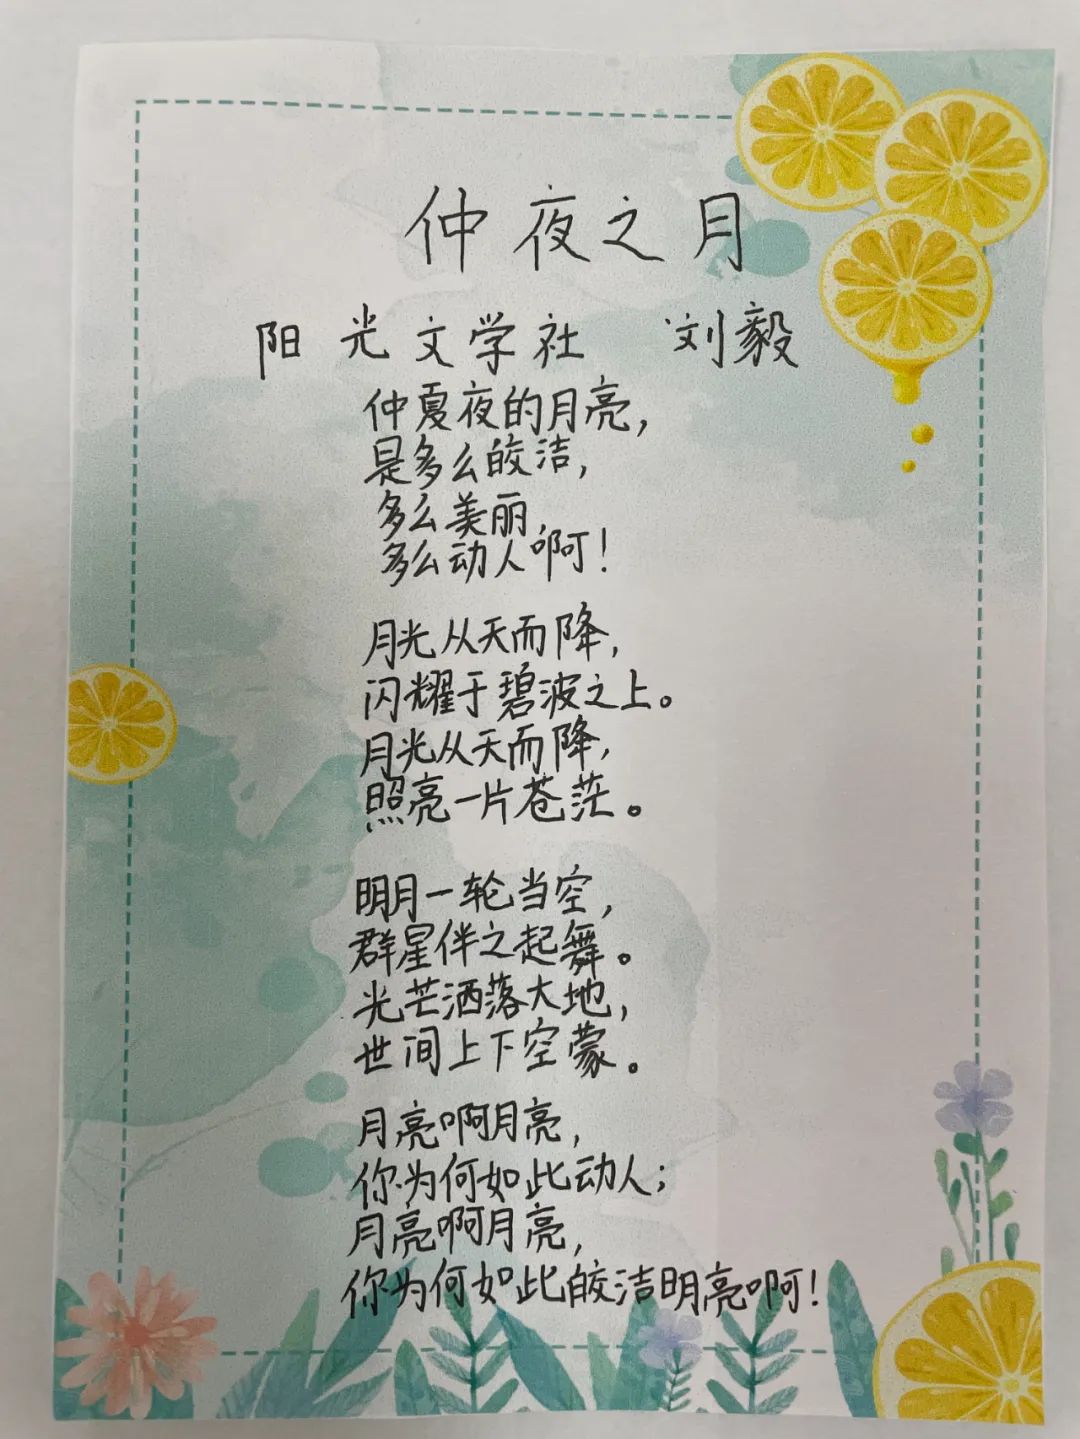 仲夜之月
阳光文学社 刘毅
仲夏夜的月亮，
是多么皎洁，
多么美丽，
多么动人啊！
月光从天而降，
闪耀于碧波之上。
月光从天而降，
照亮一片苍茫。
明月一轮当空，
群星伴之起舞。
光芒洒落大地，
世间上下空蒙。
月亮啊月亮，
你为何如此动人；
月亮啊月亮，
你为何如此皎洁明亮啊！